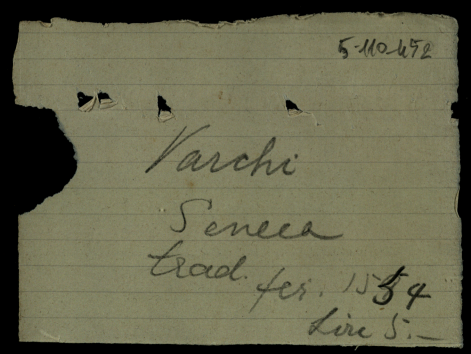 5-110-452
Varchi
Seneca
trad.
fer. 1554
Lire 5.—